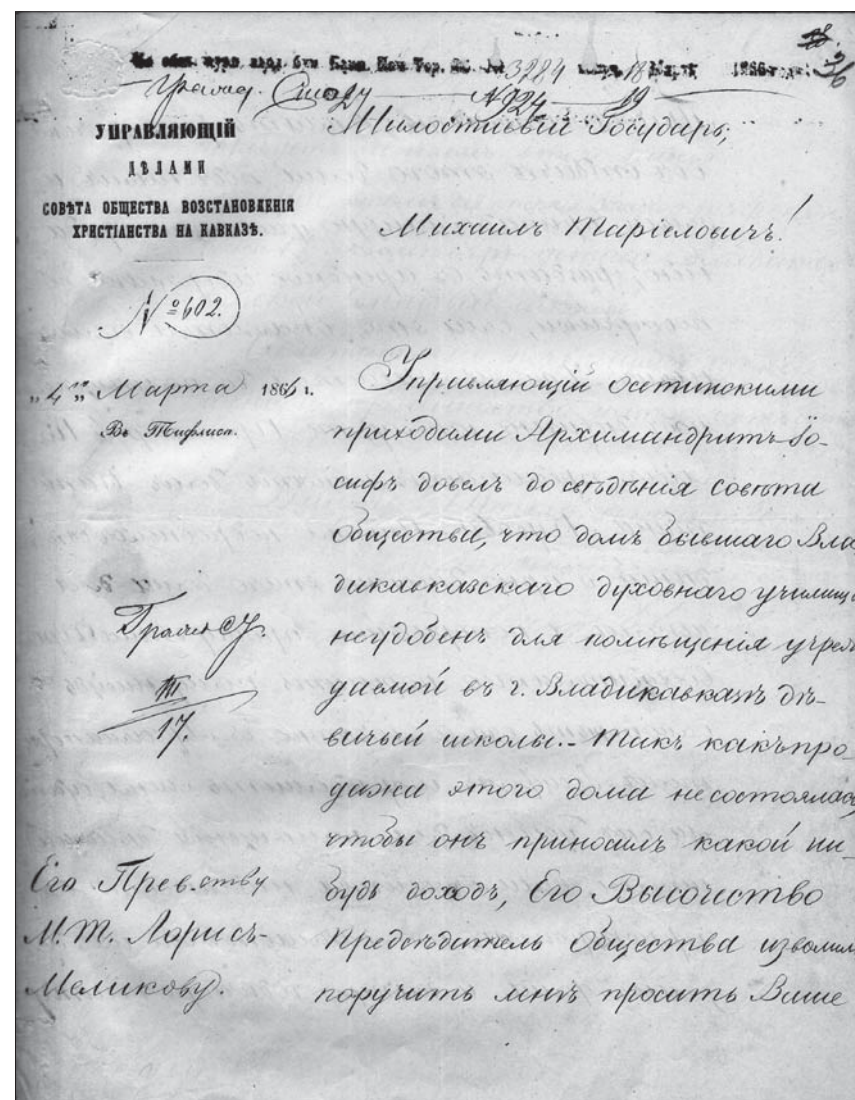 3284 18 Марта 1866 года
№ 924 19
УПРАВЛЯЮЩІЙ
ДѢЛАМИ
СОВѢТА ОБЩЕСТВА ВОЗСТАНОВЛЕНІЯ
ХРИСТІАНСТВА НА КАВКАЗѢ.
№ 602.
„4" Марта 1866 г.
Въ Тифлисѣ.
III
17.
Его Прев.ству
М. Т. Лорисъ-
Меликову.
Милостивый Государь,
Михаилъ Таріеловичъ!
Управляющій осетинскими
приходами Архимандритъ Іо-
сифъ довелъ до свѣдѣнія совѣта
Общества, что домъ бывшаго Вла
дикавказскаго духовнаго училища
неудобенъ для помѣщенія учреж
даемой въ г. Владикавказѣ дѣ-
вичьей школы.- Такъ какъ про-
дажа этого дома не состоялась,
чтобы онъ приносилъ какой ни-
будь доходъ, Его Высочество
Предсѣдатель Общества изволилъ
поручить мнѣ просить Ваше